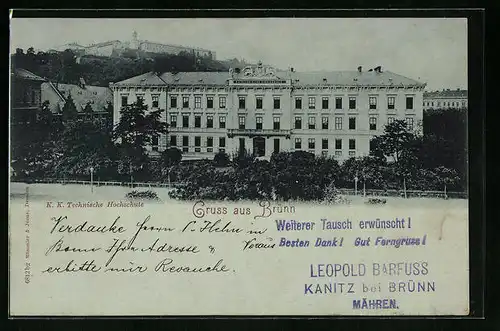 K. K. Technische Hochschule
Gruss aus Brünn
Verdanke Herrn V. Helm in
Bonn Ihre Adresse &
erbitte mir Revanche.
Voraus
Weiterer Tausch erwünscht!
Besten Dank! Gut Ferngruss!
LEOPOLD BARFUSS
KANITZ bei BRÜNN
MÄHREN.